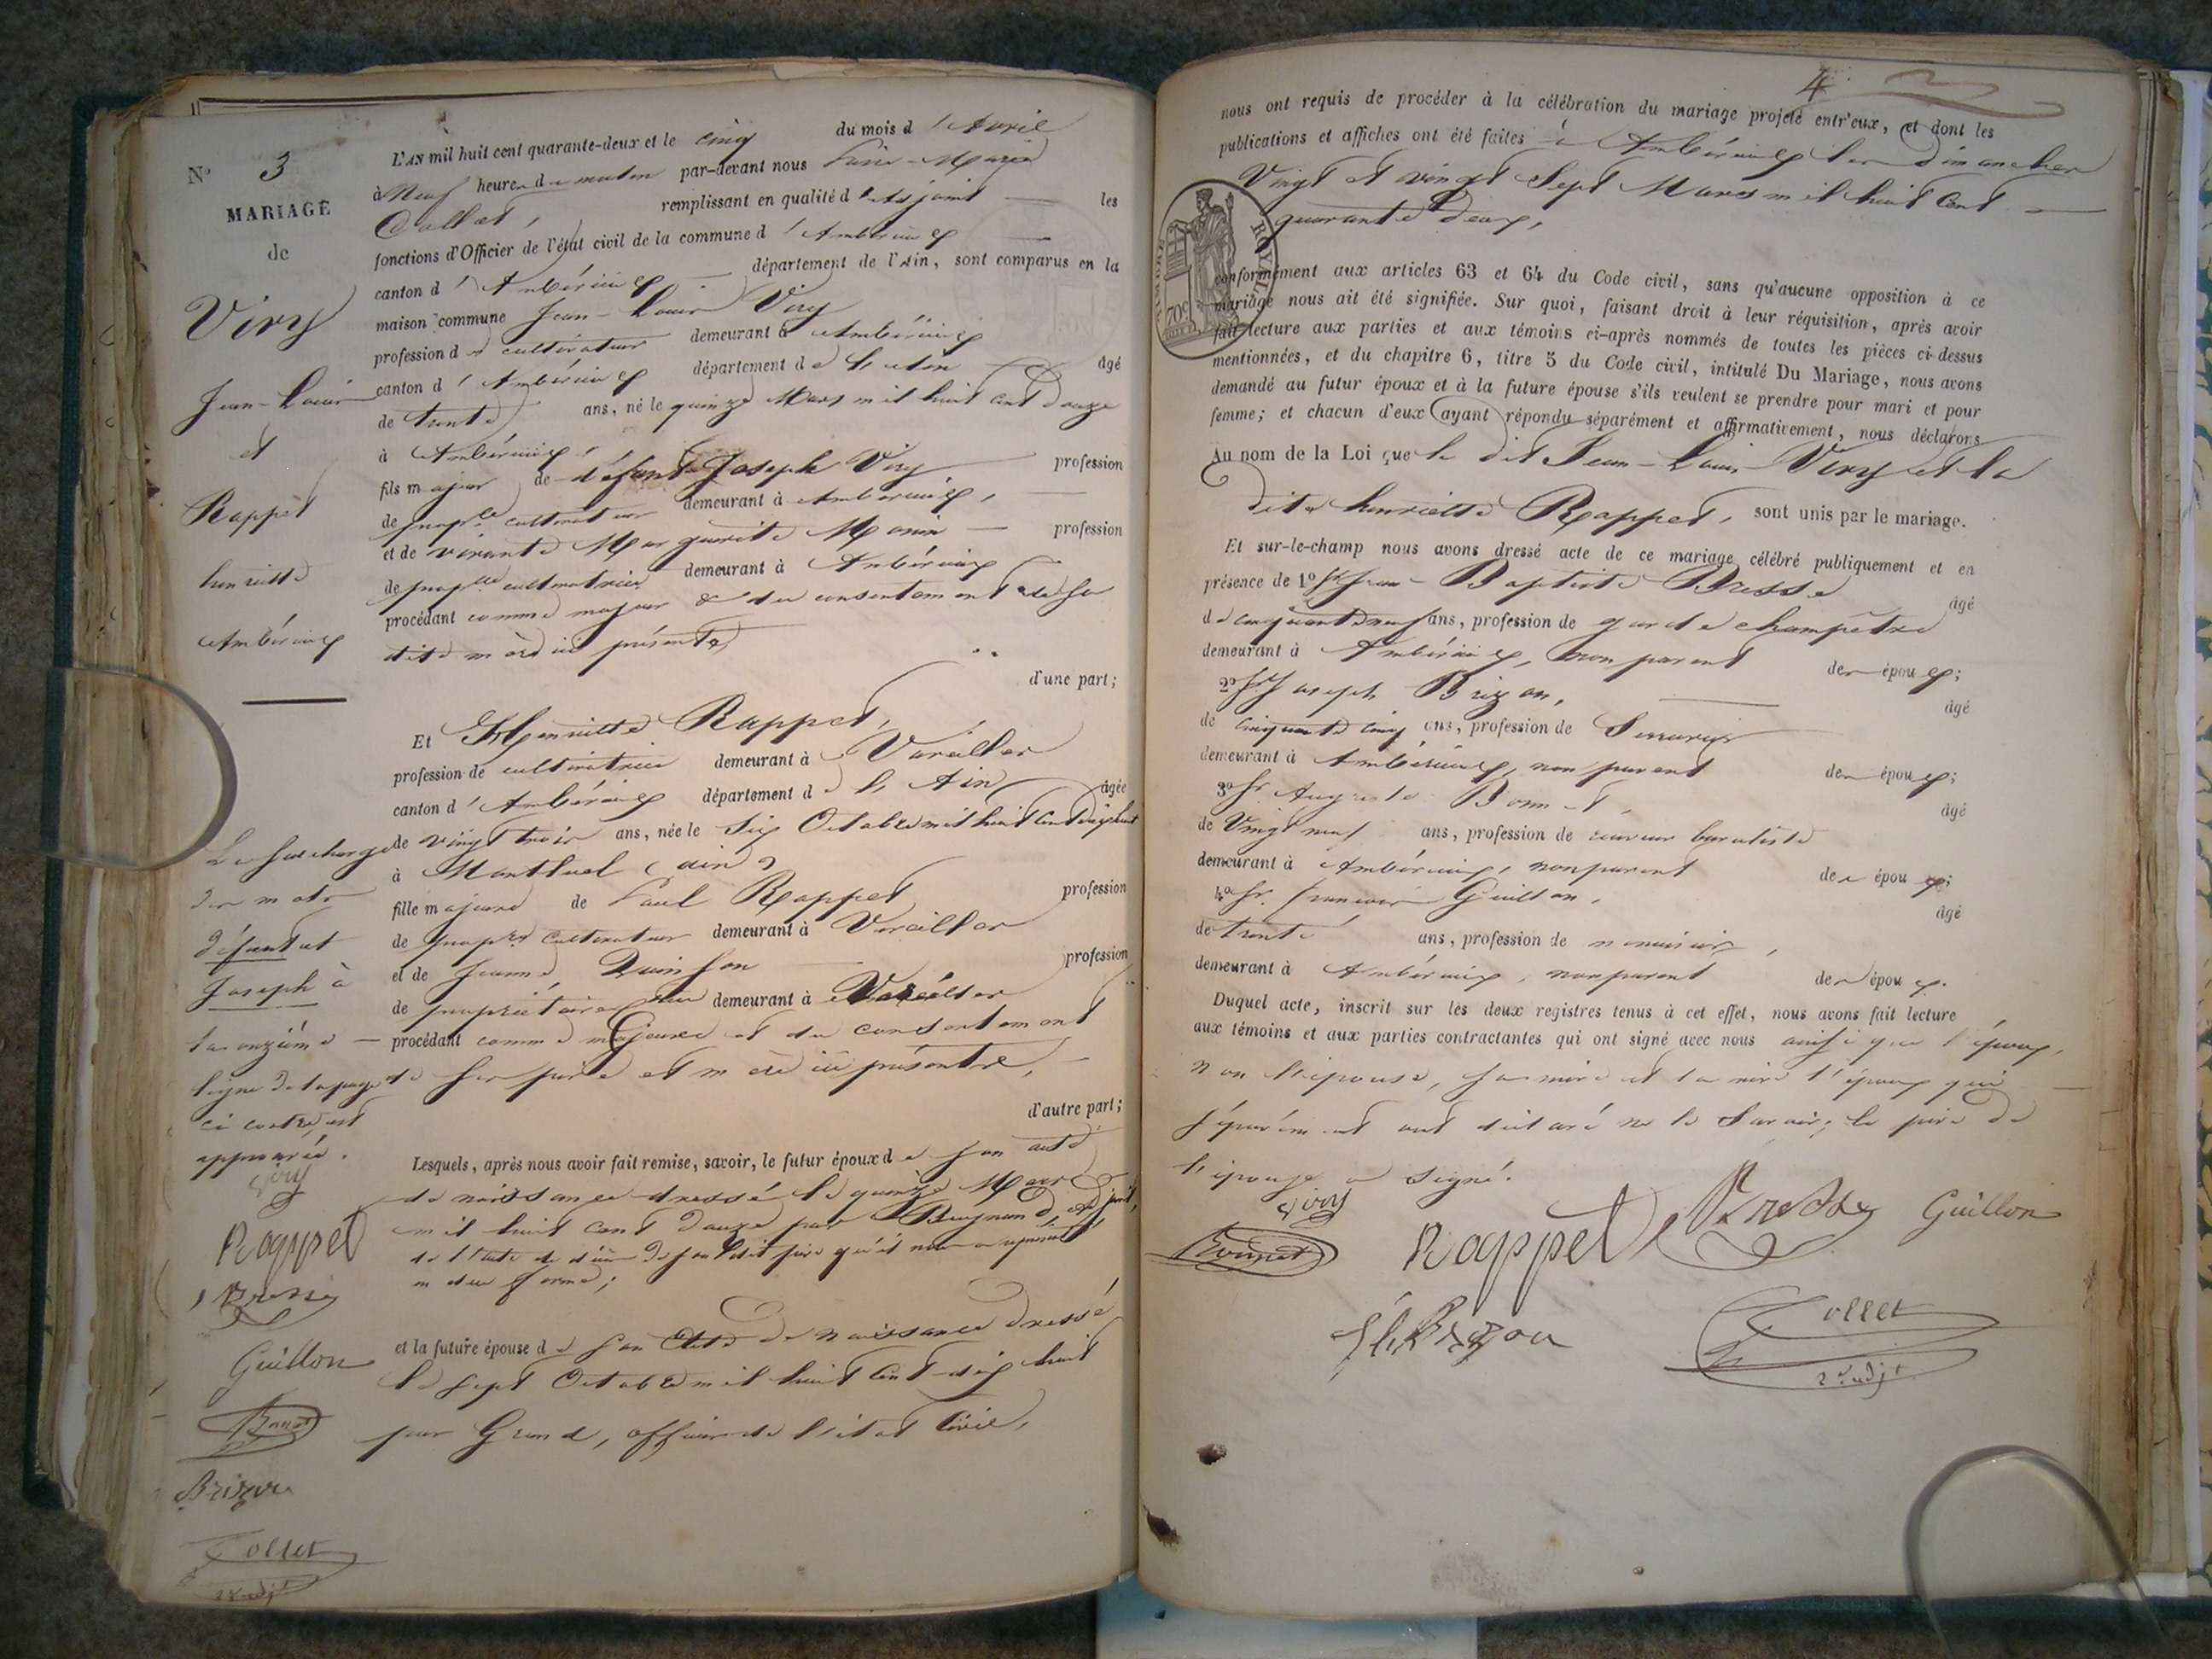 N° 3
MARIAGE
de
Viry
Jean-Louis
et
Rappet
henriette
Ambérieux
La surcharge
des mots
défunt et
Joseph à
la onzième
ligne de la page
ci contre, est
approuvée.
Viry
Rappet
Bresse
Guillon
Bonnet
Brizon
Collet
2e adjt
L'AN mil huit cent quarante-deux et le cinq du mois d'Avril
à Neuf heures du matin par-devant nous Marie
Collet, remplissant en qualité d'adjoint les
fonctions d'Officier de l'état civil de la commune d'Ambérieux
canton d'Ambérieux département de l'Ain, sont comparus en la
maison commune Jean-Louis Viry
profession de cultivateur demeurant à Ambérieux
canton d'Ambérieux département de l'Ain âgé
de trente ans, né le quinze Mars mil huit cent douze
à Ambérieux
fils majeur de défunt Joseph Viry profession
de propre cultivateur demeurant à Ambérieux,
et de vivante Marguerite Monin profession
de propre cultivatrice demeurant à Ambérieux
procédant comme majeur & du consentement de sa
dite mère ici présente
d'une part;
Et Henriette Rappet,
profession de cultivatrice demeurant à Vareilles
canton d'Ambérieux département de l'Ain âgée
de vingt trois ans, née le Six Octobre mil huit cent dix huit
à Montluel (ain)
fille majeure de Paul Rappet profession
de propre cultivateur demeurant à Vareilles
et de Jeanne Quinson profession
de propriétaire demeurant à Vareilles
procédant comme majeure et du consentement
de ses père et mère ici présents,
d'autre part;
Lesquels, après nous avoir fait remise, savoir, le futur époux de son acte
de naissance dressé le quinze Mars
mil huit cent douze par
de l'acte de décès de son dit père qu'il nous a représenté
en due forme;
et la future épouse de son Acte de naissance dressé
le sept Octobre mil huit cent dix huit
par Grand, officier de l'état Civil,
4
nous ont requis de procéder à la célébration du mariage projeté entr'eux, et dont les
publications et affiches ont été faites à Ambérieux les dimanches
Vingt et vingt Sept Mars mil huit Cent
quarante deux,
TIMBRE ROYAL
70c
conformément aux articles 63 et 64 du Code civil, sans qu'aucune opposition à ce
mariage nous ait été signifiée. Sur quoi, faisant droit à leur réquisition, après avoir
fait lecture aux parties et aux témoins ci-après nommés de toutes les pièces ci-dessus
mentionnées, et du chapitre 6, titre 5 du Code civil, intitulé Du Mariage, nous avons
demandé au futur époux et à la future épouse s'ils veulent se prendre pour mari et pour
femme; et chacun d'eux ayant répondu séparément et affirmativement, nous déclarons
Au nom de la Loi que le dit Jean-Louis Viry et la
dite henriette Rappet, sont unis par le mariage.
Et sur-le-champ nous avons dressé acte de ce mariage célébré publiquement et en
présence de 1° Sr Jean-Baptiste Bresse âgé
de cinquante neuf ans, profession de garde champêtre
demeurant à Ambérieux, non parent des époux;
2° Sr Joseph Brizon, âgé
de cinquante cinq ans, profession de Serrurier
demeurant à Ambérieux, non parent des époux;
3° Sr Auguste Bonnet, âgé
de Vingt neuf ans, profession de buraliste
demeurant à Ambérieux, non parent des époux;
4° Sr. françois Guillon, âgé
de trente ans, profession de menuisier,
demeurant à Ambérieux, non parent des époux.
Duquel acte, inscrit sur les deux registres tenus à cet effet, nous avons fait lecture
aux témoins et aux parties contractantes qui ont signé avec nous ainsi que l'époux,
non l'épouse, sa mère et la mère l'époux qui
séparément ont déclaré ne le Savoir; le père de
l'épouse a signé.
Viry
Bonnet Rappet Bresse Guillon
Brizon
Collet
2e adjt